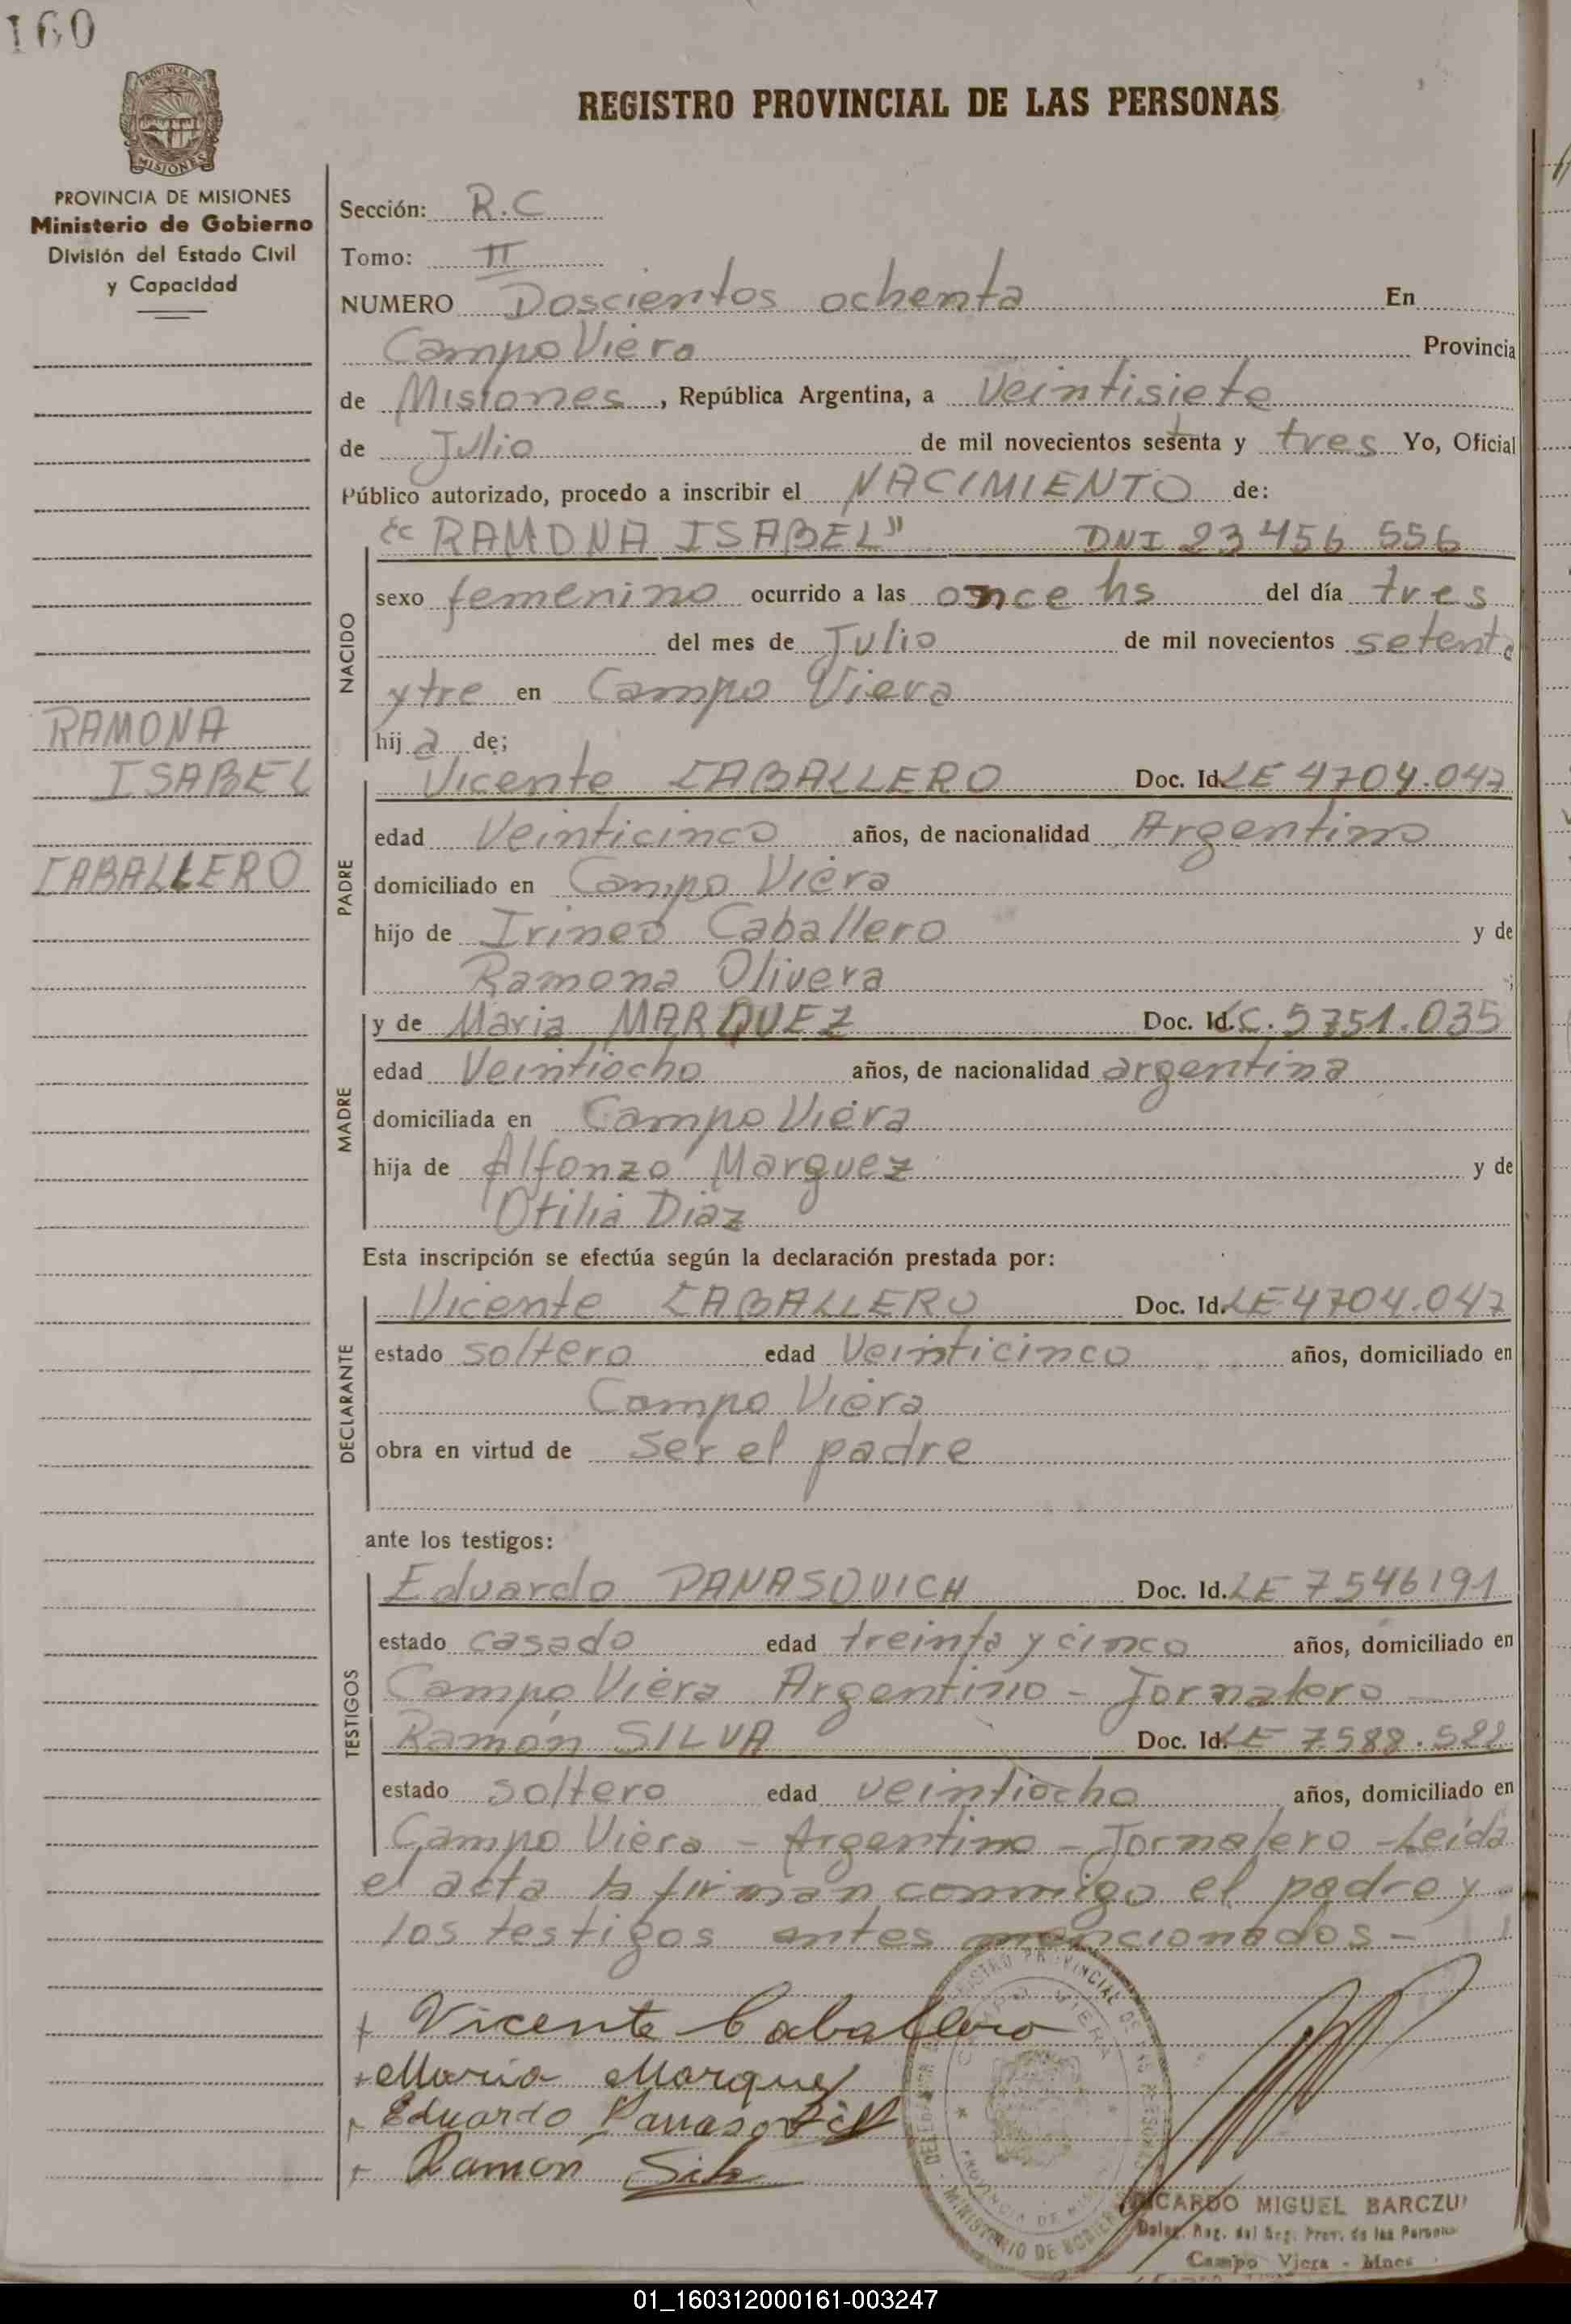 160
PROVINCIA DE
MISIONES
PROVINCIA DE MISIONES
Ministerio de Gobierno
División del Estado Civil
y Capacidad
RAMONA
ISABEL
CABALLERO
REGISTRO PROVINCIAL DE LAS PERSONAS
Sección: R.C
Tomo: II
NUMERO Doscientos ochenta En
Campo Viera Provincia
de Misiones, República Argentina, a Veintisiete
de Julio de mil novecientos setenta y tres Yo, Oficial
Público autorizado, procedo a inscribir el NACIMIENTO de:
NACIDO
"RAMONA ISABEL" DNI 23 456 556
sexo femenino ocurrido a las once hs del día tres
del mes de Julio de mil novecientos setenta
y tre en Campo Viera
hij a de;
PADRE
Vicente CABALLERO Doc. Id. LE 4704.047
edad Veinticinco años, de nacionalidad Argentino
domiciliado en Campo Viera
hijo de Irineo Caballero y de
Ramona Olivera ;
MADRE
y de Maria MARQUEZ Doc. Id. C. 5751.035
edad Veintiocho años, de nacionalidad argentina
domiciliada en Campo Viera
hija de Alfonzo Marquez y de
Otilia Diaz
Esta inscripción se efectúa según la declaración prestada por:
DECLARANTE
Vicente CABALLERO Doc. Id. LE 4704.047
estado soltero edad Veinticinco años, domiciliado en
Campo Viera
obra en virtud de ser el padre
ante los testigos:
TESTIGOS
Eduardo PANASOVICH Doc. Id. LE 7546191
estado casado edad treinta y cinco años, domiciliado en
Campo Viera Argentino - Jornalero
Ramón SILVA Doc. Id. LE 7588.522
estado soltero edad veintiocho años, domiciliado en
Campo Viera - Argentino - Jornalero - Leída
el acta la firman conmigo el padre y
los testigos antes mencionados -
+ Vicente Caballero
+ Maria Marquez
+ Eduardo Panasovich
+ Ramon Silva
REGISTRO PROVINCIAL DE LAS PERSONAS
CAMPO VIERA
PROVINCIA DE MISIONES
MINISTERIO DE GOBIERNO
RICARDO MIGUEL BARCZU
Deleg. Reg. del Reg. Prov. de las Personas
Campo Viera - Mnes
01_160312000161-003247